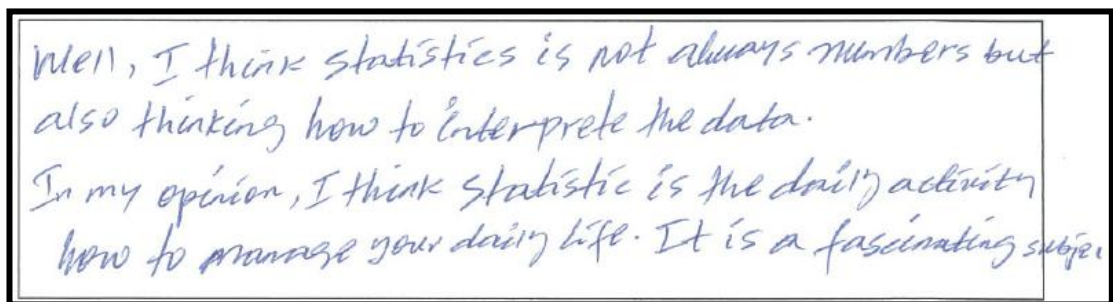 Well, I think statistics is not always numbers but
also thinking how to interprete the data.
In my opinion, I think statistic is the daily activity
how to manage your daily life. It is a fascinating subjec